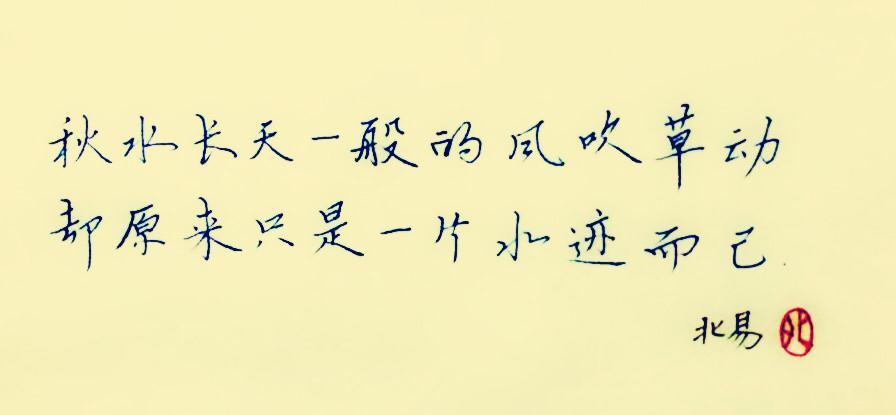 秋水长天一般的风吹草动
却原来只是一片水迹而已
北易
北